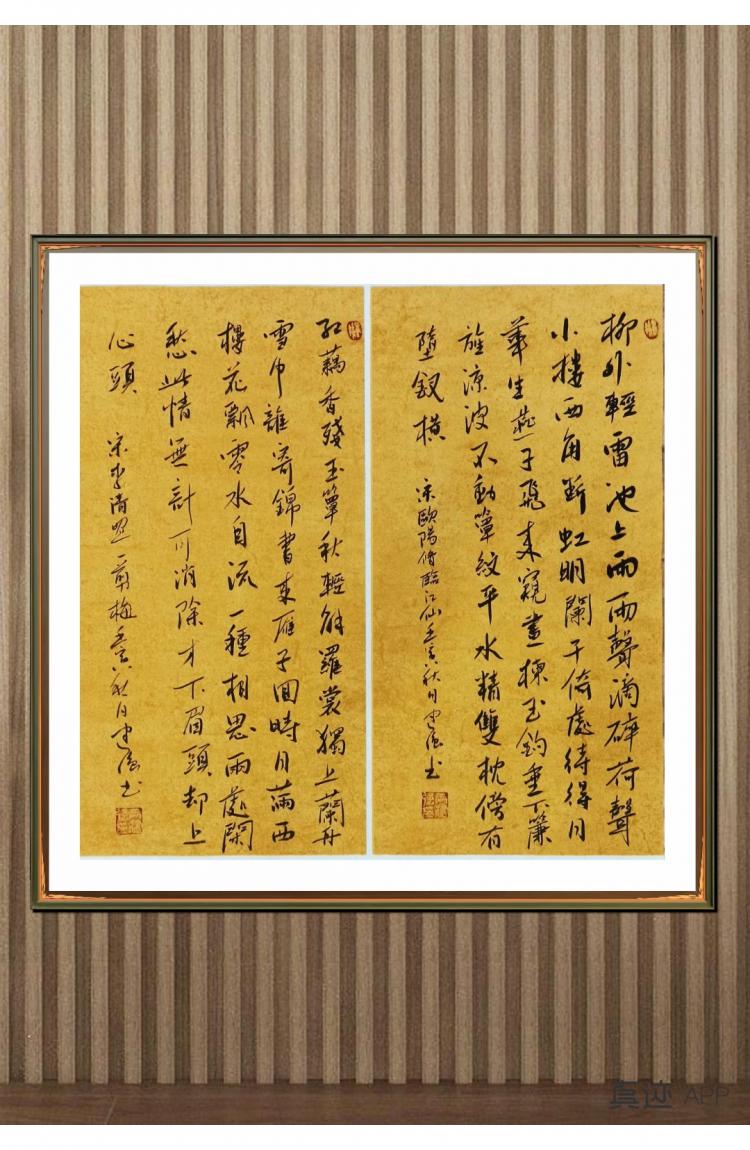 柳外輕雷池上雨雨聲滴碎荷聲
小樓西角斷虹明闌干倚處待得月
華生燕子飛来窺畫棟玉鈎垂下簾
旌涼波不動簟紋平水精雙枕傍有
墮釵横
宋歐陽修臨江仙壬寅秋月书
红藕香殘玉簟秋輕解羅裳獨上蘭舟
雲中誰寄錦書来雁子囬時月滿西
樓花飄零水自流一種相思兩處閑
愁此情無計可消除才下眉頭却上
心頭
宋李清照一剪梅壬寅秋月书
真迹 APP